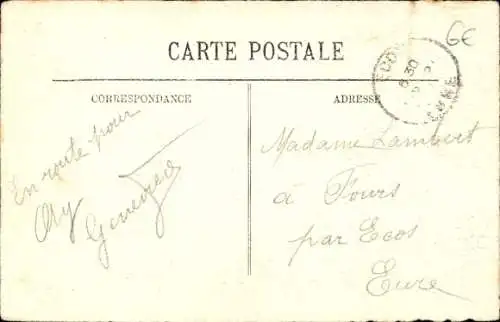 6€
CARTE POSTALE
CORRESPONDANCE
ADRESSE
En route pour
Geneviève
Madame Lambert
à Fours
par Ecos
Eure
EURE